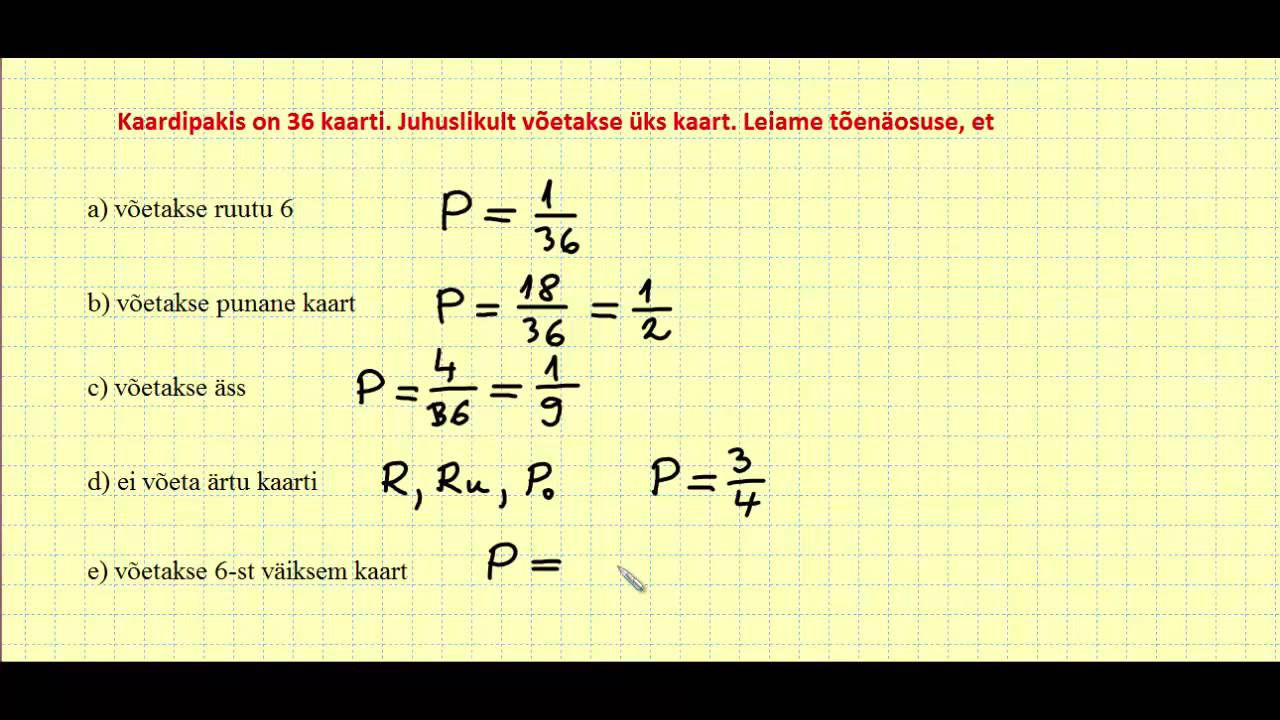 Kaardipakis on 36 kaarti. Juhuslikult võetakse üks kaart. Leiame tõenäosuse, et
a) võetakse ruutu 6 P = 1/36
b) võetakse punane kaart P = 18/36 = 1/2
c) võetakse äss P = 4/36 = 1/9
d) ei võeta ärtu kaarti R, Ru, P. P = 3/4
e) võetakse 6-st väiksem kaart P =